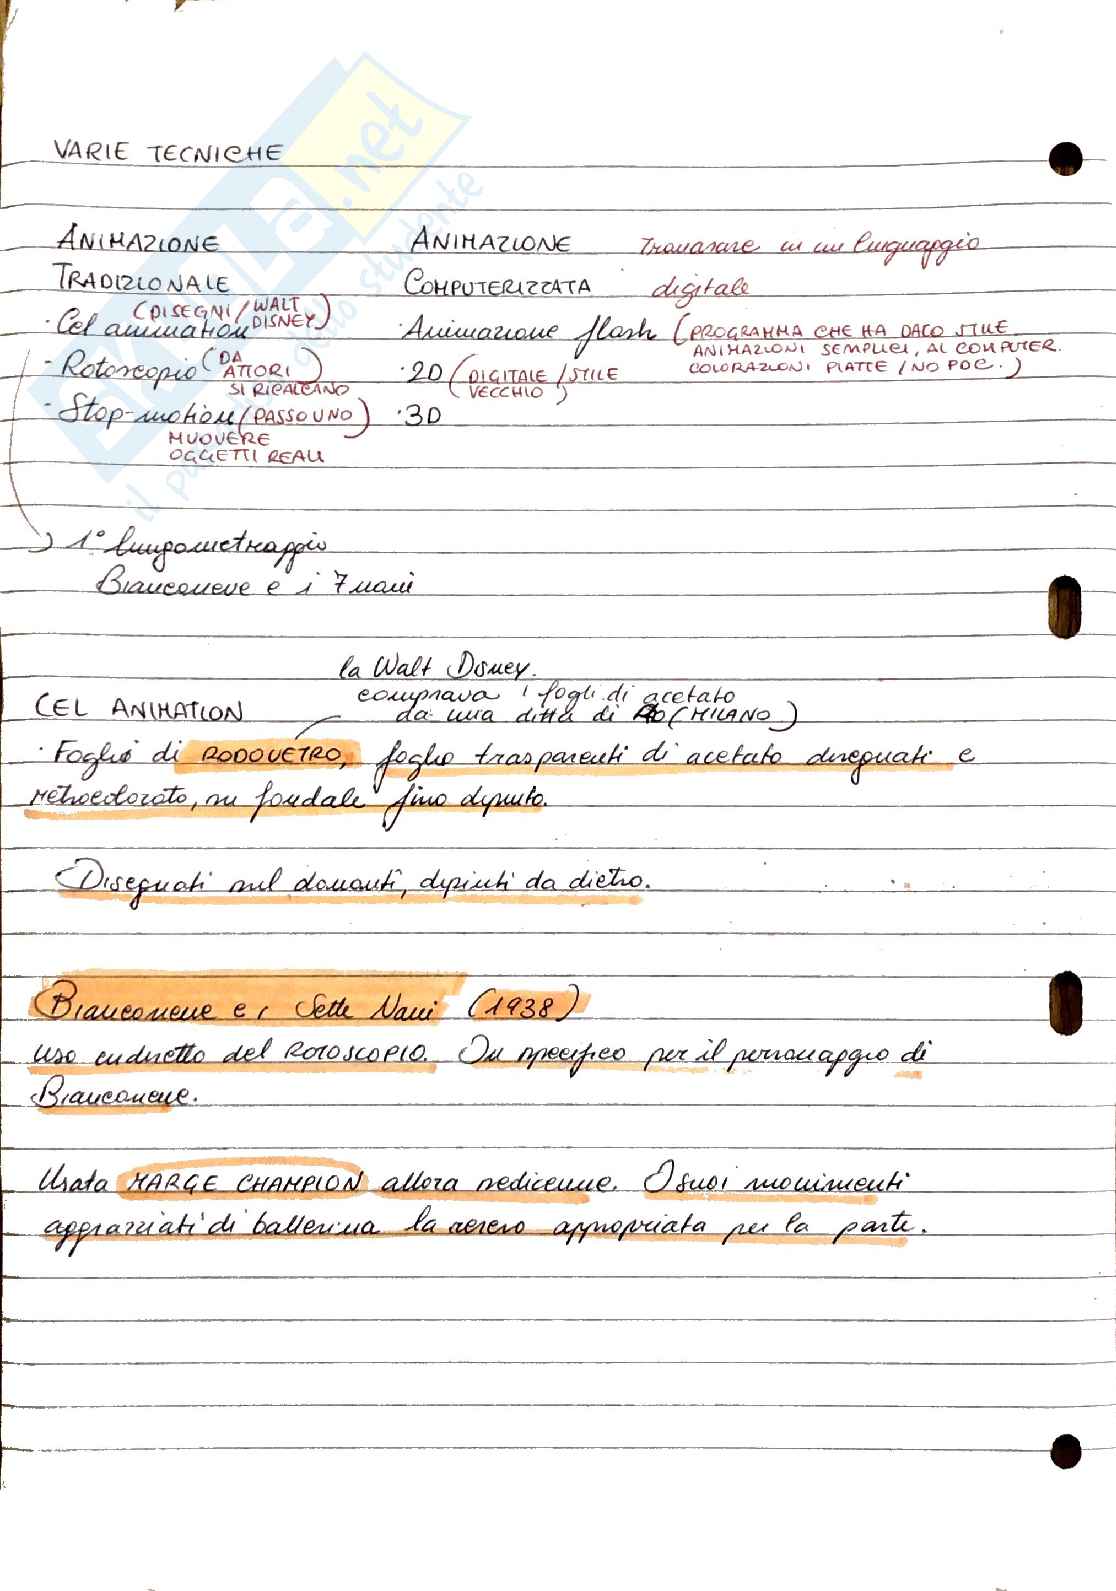 VARIE TECNICHE
ANIMAZIONE
TRADIZIONALE
· Cel animation (DISEGNI / WALT DISNEY)
· Rotoscopio (DA ATTORI SI RICALCANO)
· Stop-motion (PASSO UNO)
MUOVERE
OGGETTI REALI
ANIMAZIONE
COMPUTERIZZATA
in un linguaggio
digitale
· Animazione flash (PROGRAMMA CHE HA DATO STILE
ANIMAZIONI SEMPLICI, AL COMPUTER.
COLORAZIONI PIATTE / NO)
· 2D (DIGITALE / STILE
VECCHIO)
· 3D
1° lungometraggio
Biancaneve e i 7 nani
la Walt Disney.
comprava i fogli di acetato
da una ditta di (MILANO)
CEL ANIMATION
· Foglio di RODOVETRO, foglio trasparenti di acetato disegnati e
retrocolorato, su fondale fino dipinto.
Disegnati sul davanti, dipinti da dietro.
Biancaneve e i Sette Nani (1938)
uso indiretto del ROTOSCOPIO. In specifico per il personaggio di
Biancaneve.
Usata MARGE CHAMPION allora sedicenne. I suoi movimenti
aggraziati di ballerina la resero appropriata per la parte.
SKUOLA.net
il paradiso dello studente